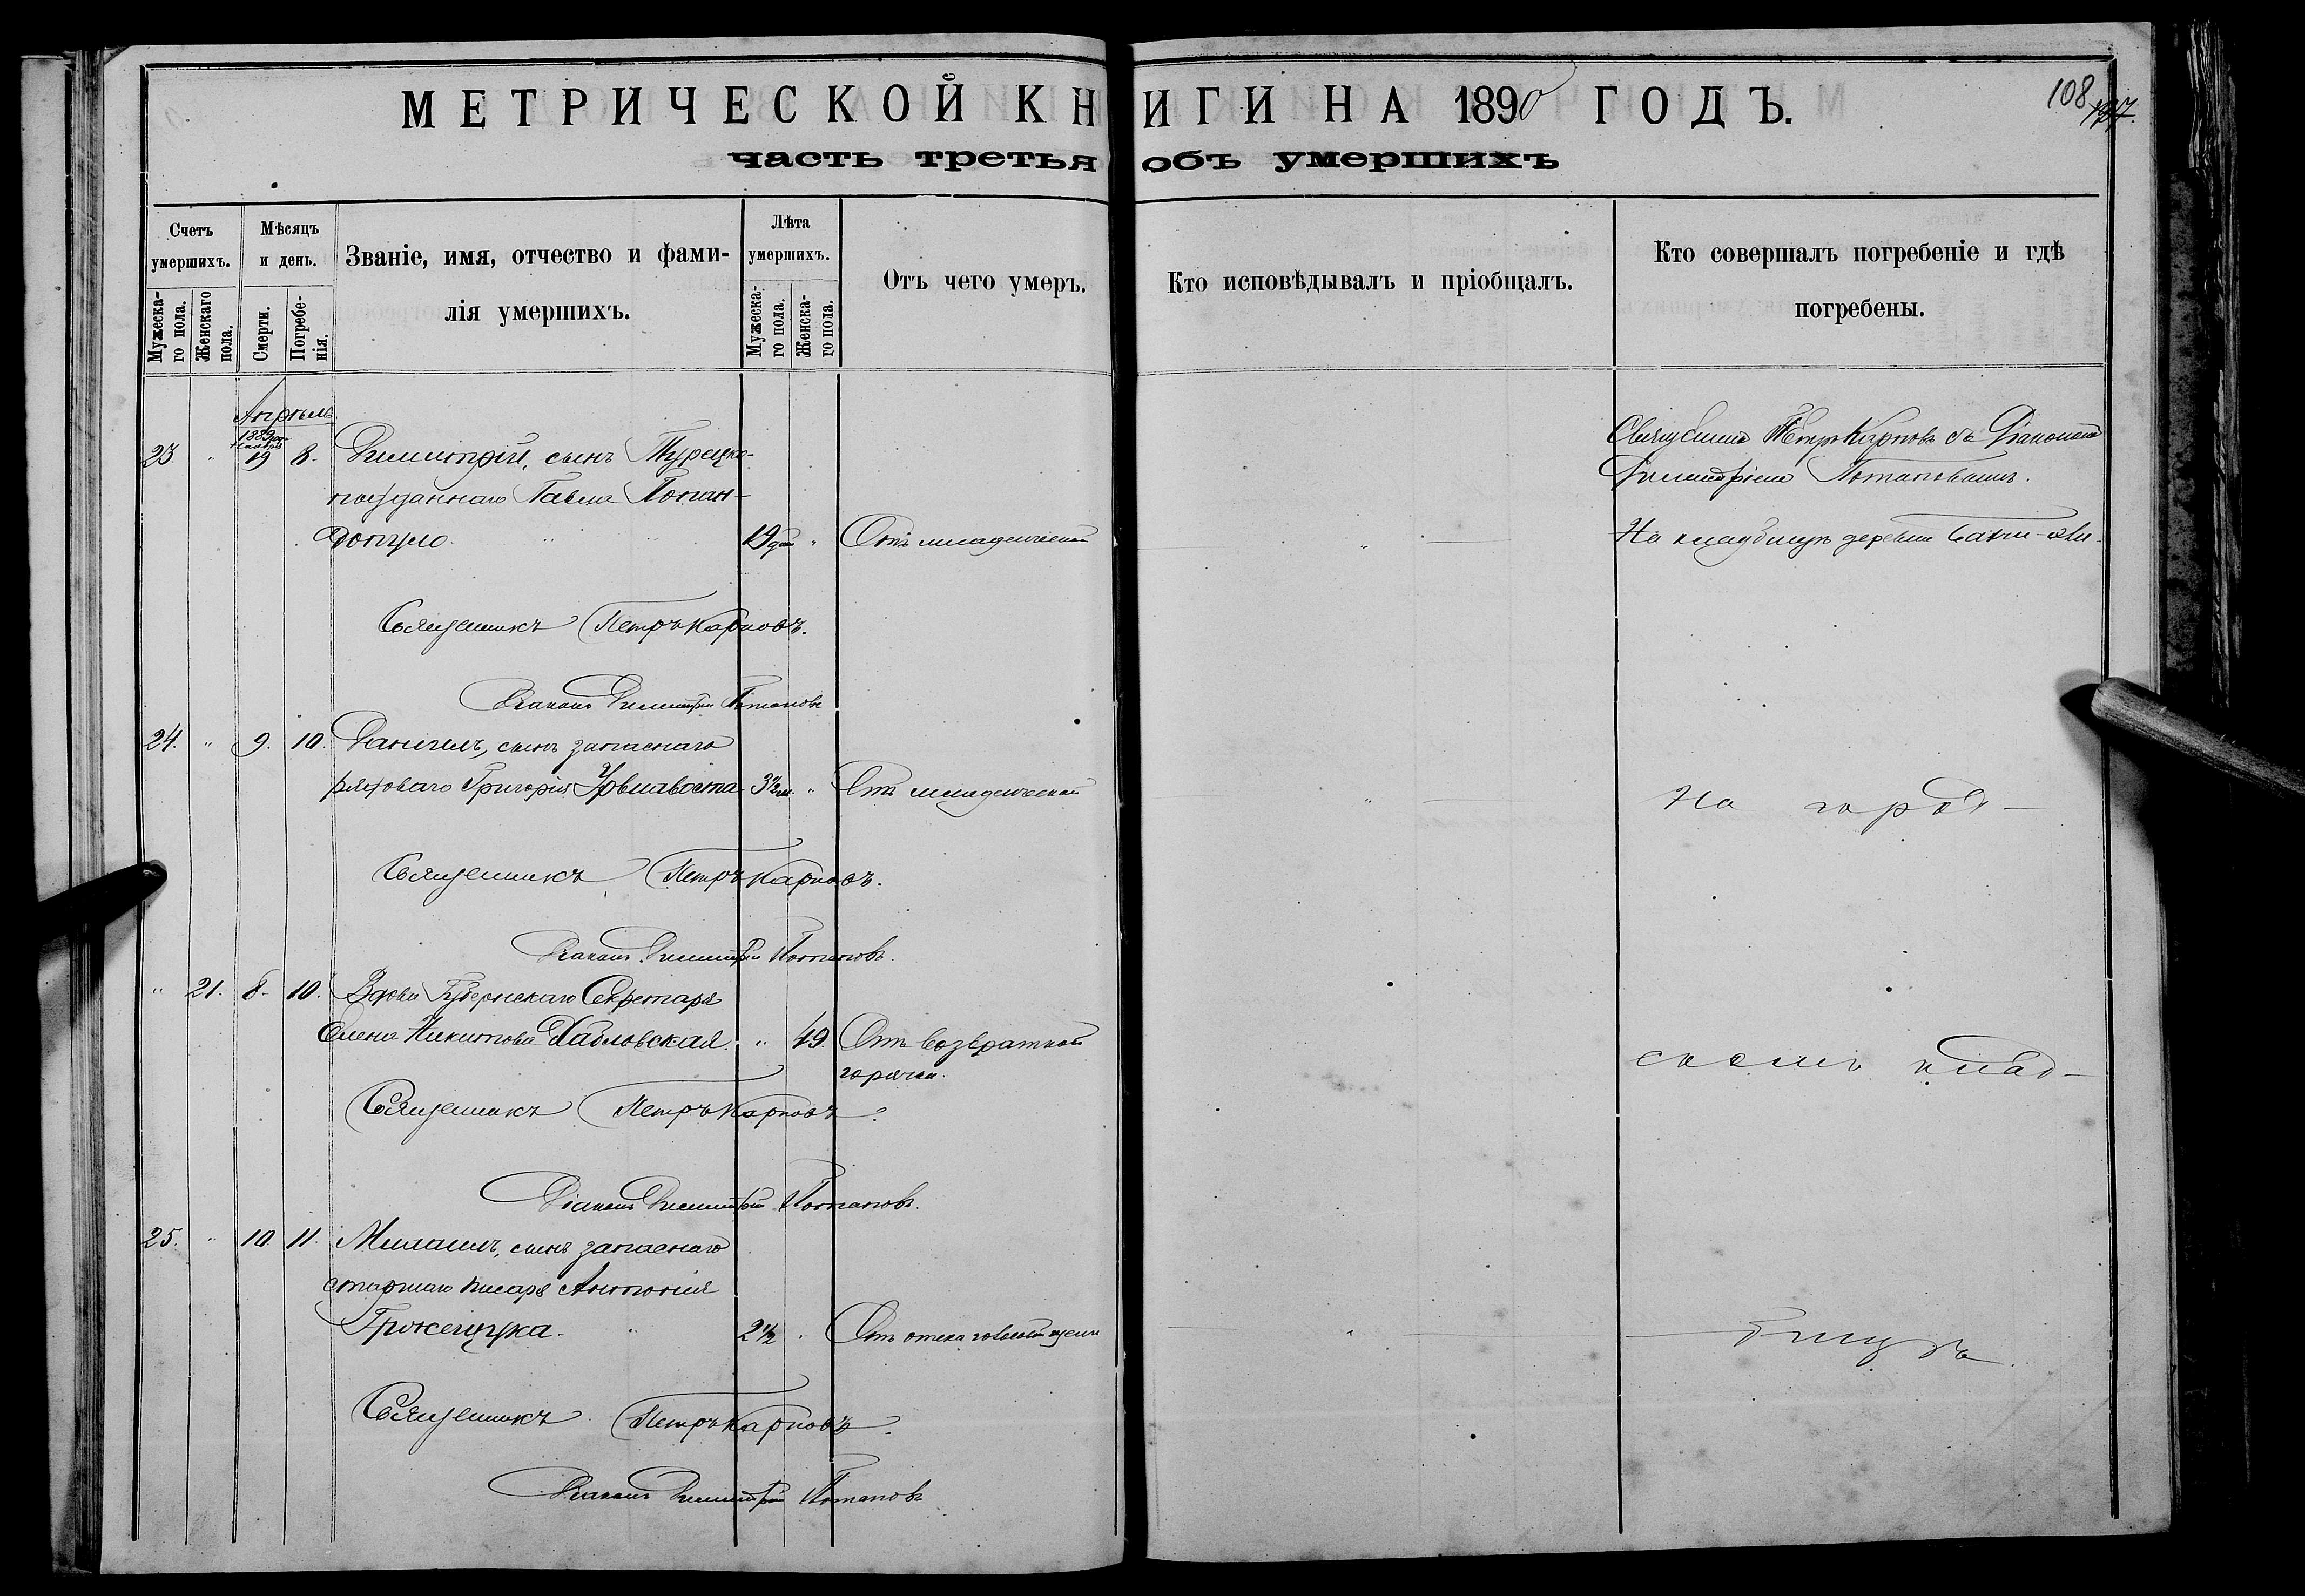 МЕТРИЧЕСКОЙ КНИГИ НА 1890 ГОДЪ.
108
127.
часть третья объ умершихъ
Счетъ умершихъ.
Мужеска-го пола.
Женскаго пола.
Мѣсяцъ и день.
Смерти.
Погребе-нія.
Званіе, имя, отчество и фами-
лія умершихъ.
Лѣта умершихъ.
Мужеска-го пола.
Женска-го пола.
Отъ чего умеръ.
Кто исповѣдывалъ и пріобщалъ.
Кто совершалъ погребеніе и гдѣ
погребены.
Апрѣль
1889 года
Ноября
23. " 19 8. Димитрій, сынъ Турецко-
подданнаго Павла Попан-
допуло. 19 дн. " Отъ младенческой
Священникъ Петръ Карповъ съ Діакономъ
Димитріемъ Потаповымъ.
На кладбищѣ деревни
Священникъ Петръ Карповъ.
Діаконъ Димитрій Потаповъ
24. " 9. 10. Даніилъ, сынъ запаснаго
рядоваго Григорія 3½ м. " Отъ младенческой
На город-
Священникъ Петръ Карповъ.
Діаконъ Димитрій Потаповъ.
" 21. 8. 10. Вдова Губернскаго Секретаря
Елена Никитова Павловская. " 49. Отъ возвратной
горячки.
скомъ клад-
Священникъ Петръ Карповъ.
Діаконъ Димитрій Потаповъ.
25. " 10. 11. Михаилъ, сынъ запаснаго
старшаго писаря Антонія
2½ " Отъ отека
бищѣ.
Священникъ Петръ Карповъ.
Діаконъ Димитрій Потаповъ